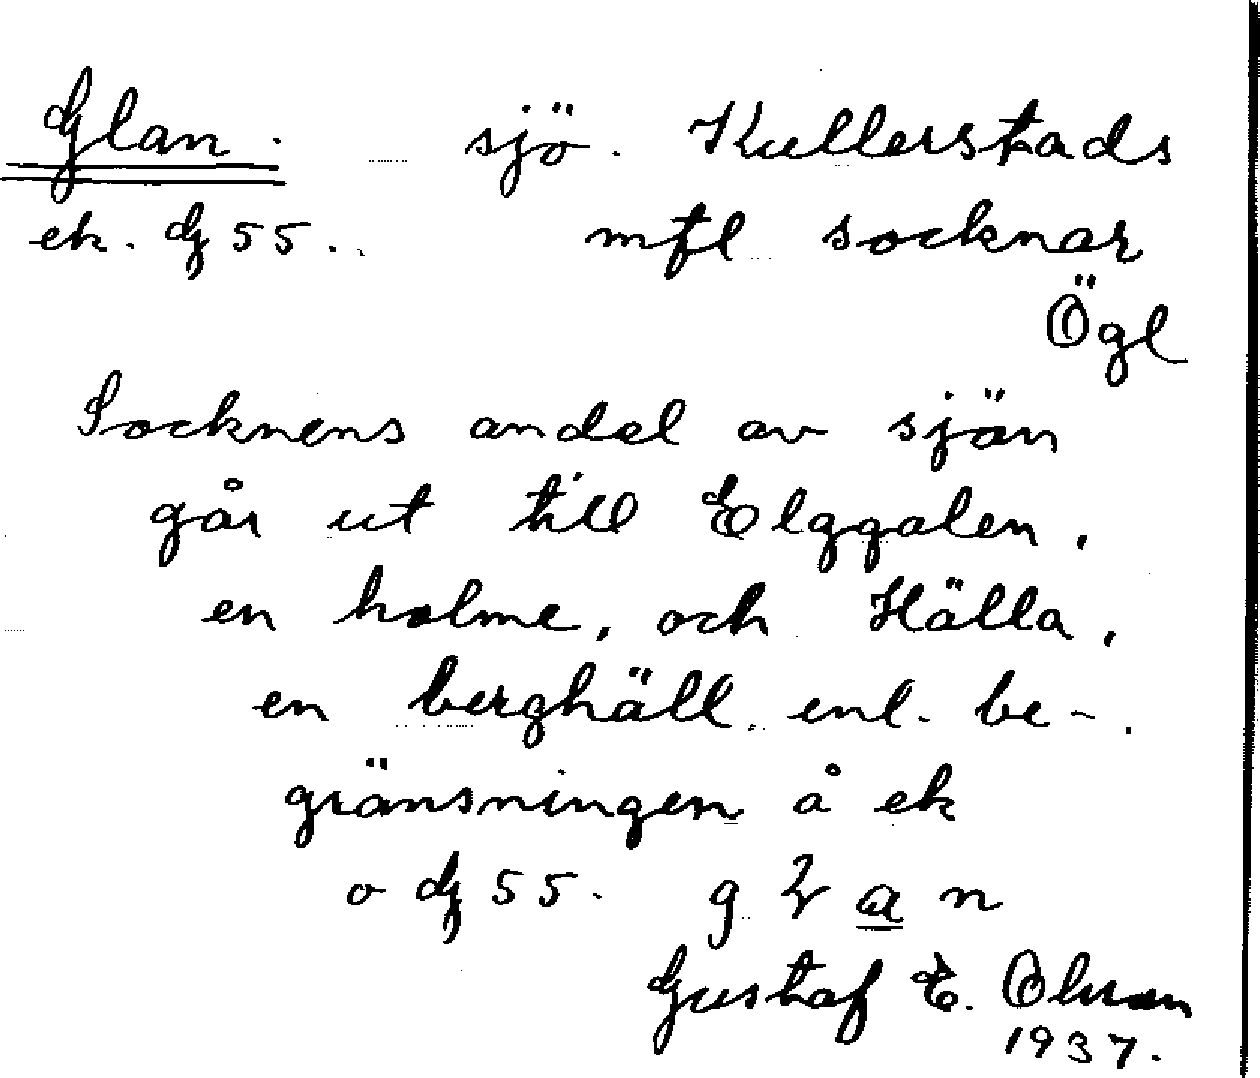 Glan. sjö. Kullerstads
ek. G 55. mfl socknar
Ögl
Socknens andel av sjön
går ut till Elggalen,
en holme, och Hälla,
en berghäll enl. be-
gränsningen å ek
o G 55. g a n
Gustaf E. Olsson
1937.